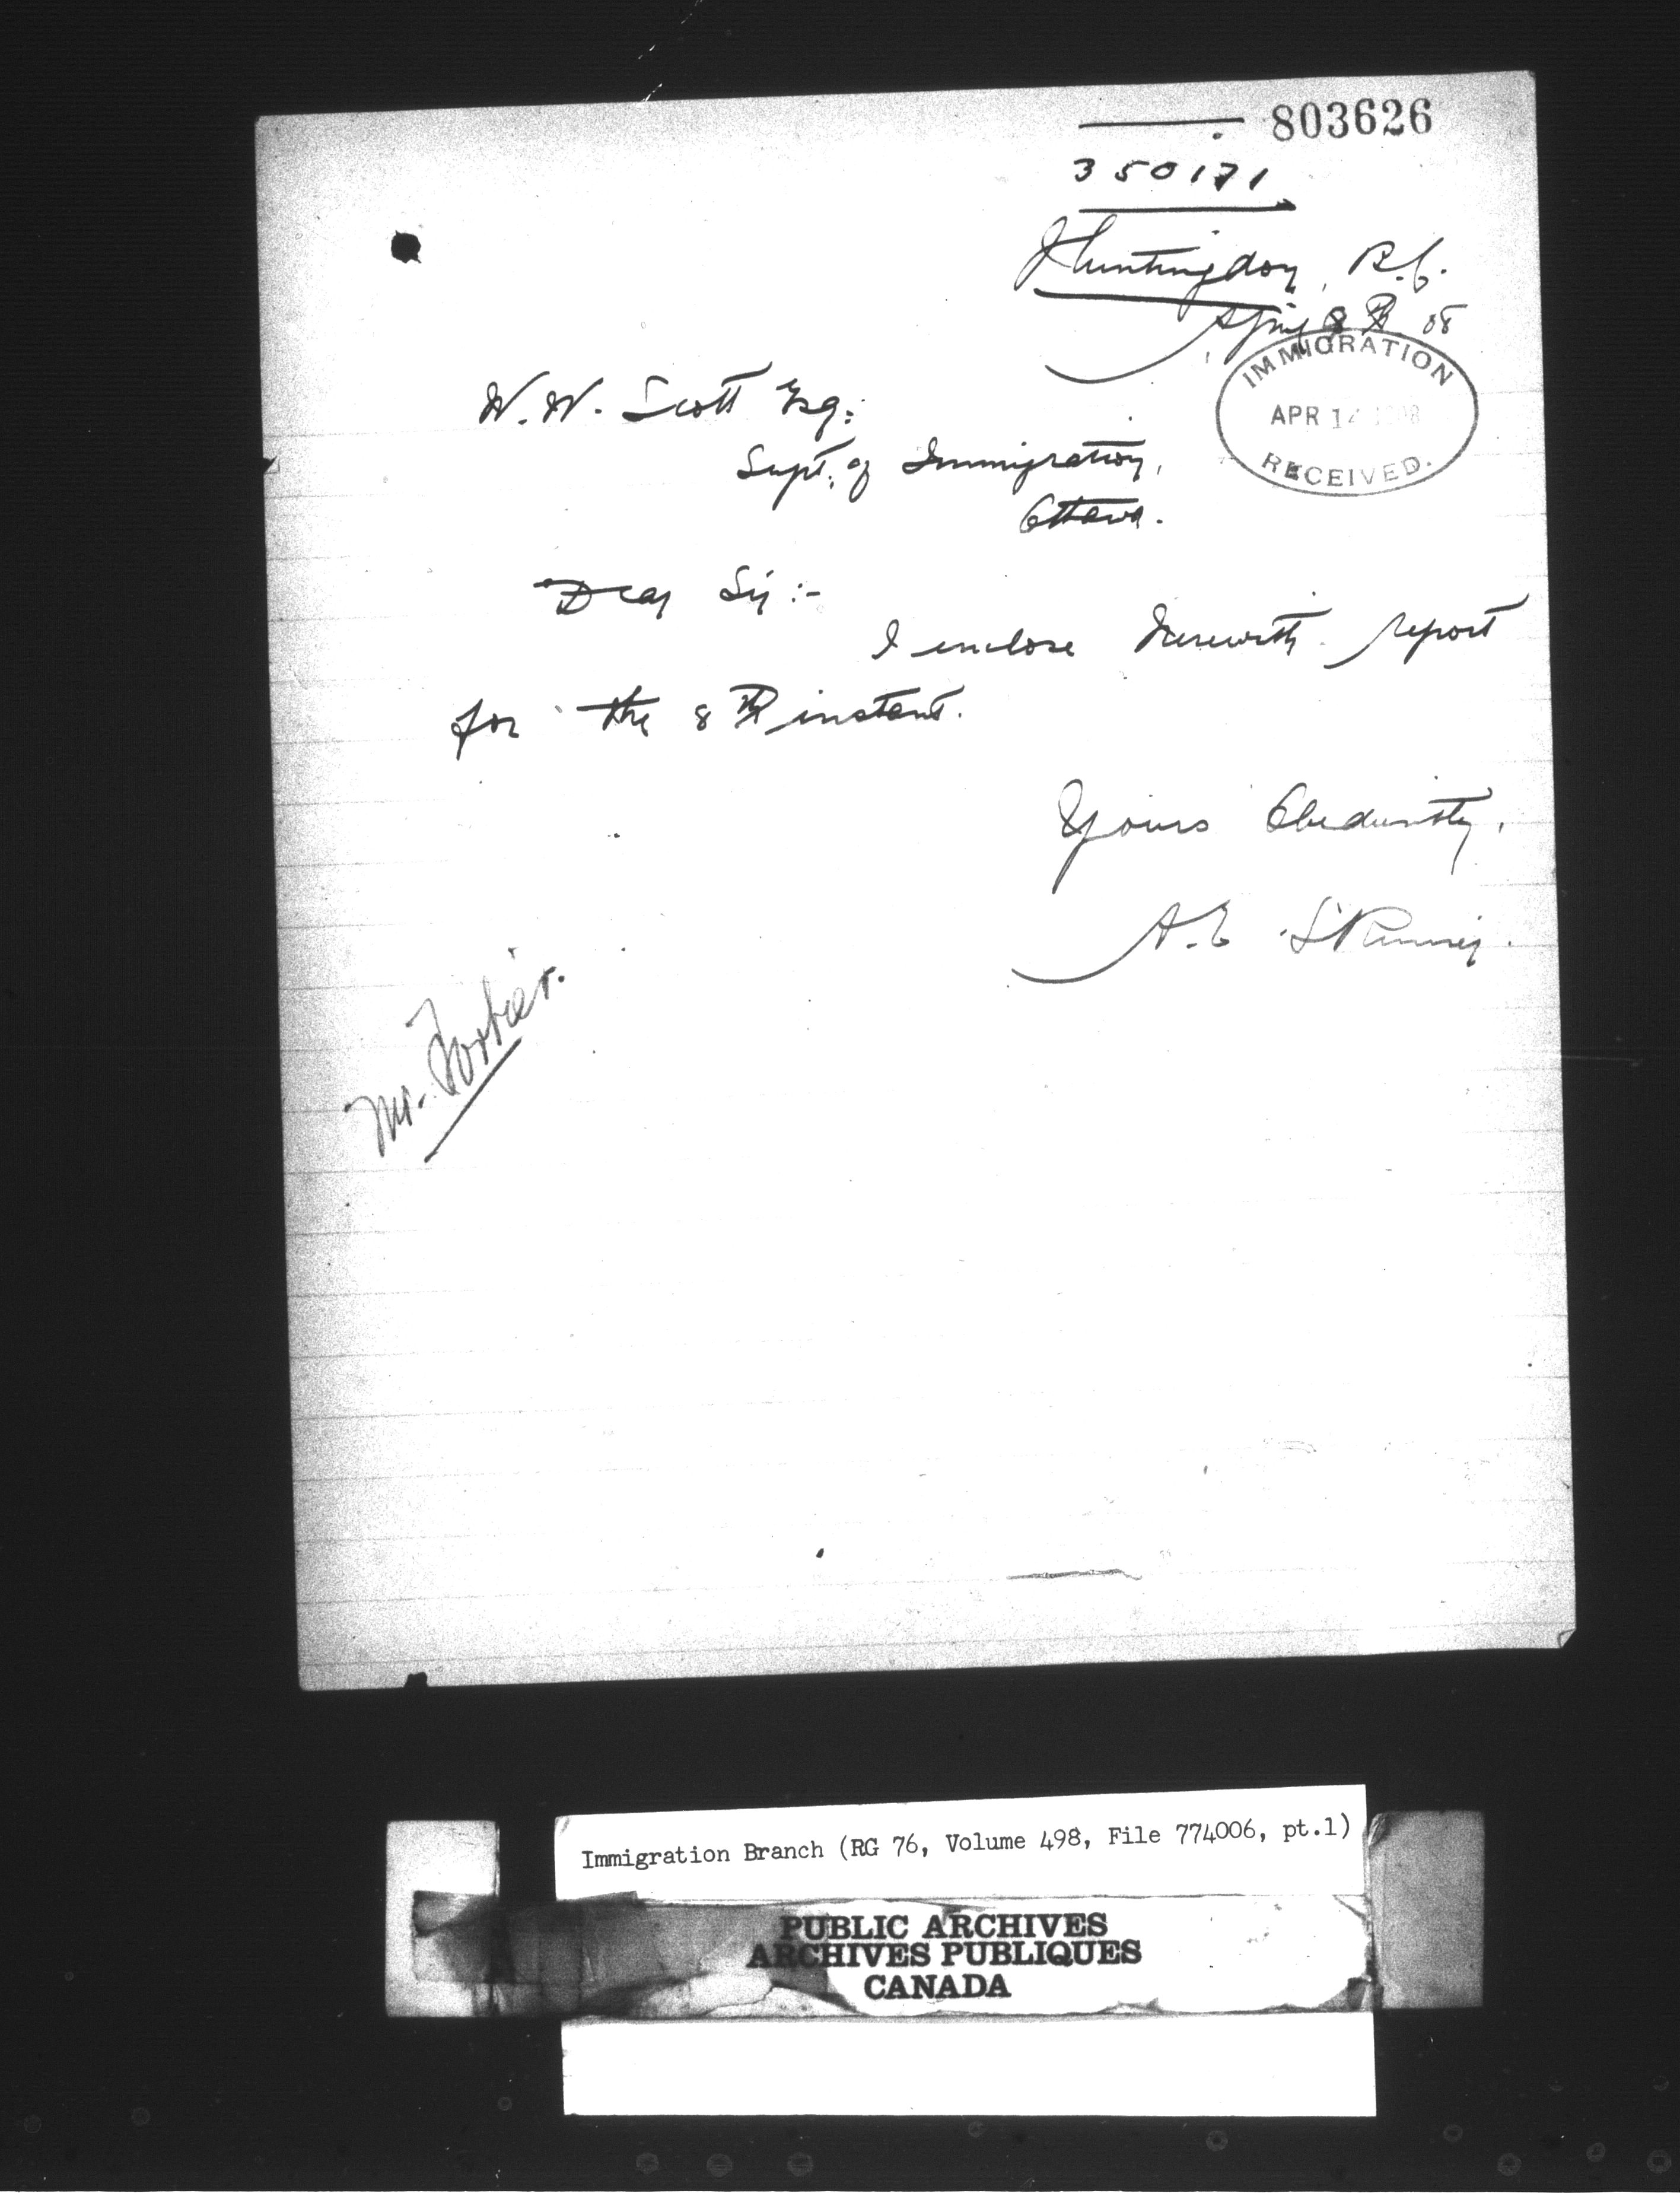 803626
350171
Huntingdon, B.C.
April 8th 08
IMMIGRATION
APR 14 1908
RECEIVED.
W. W. Scott Esq:
Supt. of Immigration,
Ottawa.
Dear Sir :-
I enclose herewith report
for the 8th instant.
Yours Obediently,
A. E. Skinner.
Mr. Fortier.
Immigration Branch (RG 76, Volume 498, File 774006, pt.1)
PUBLIC ARCHIVES
ARCHIVES PUBLIQUES
CANADA